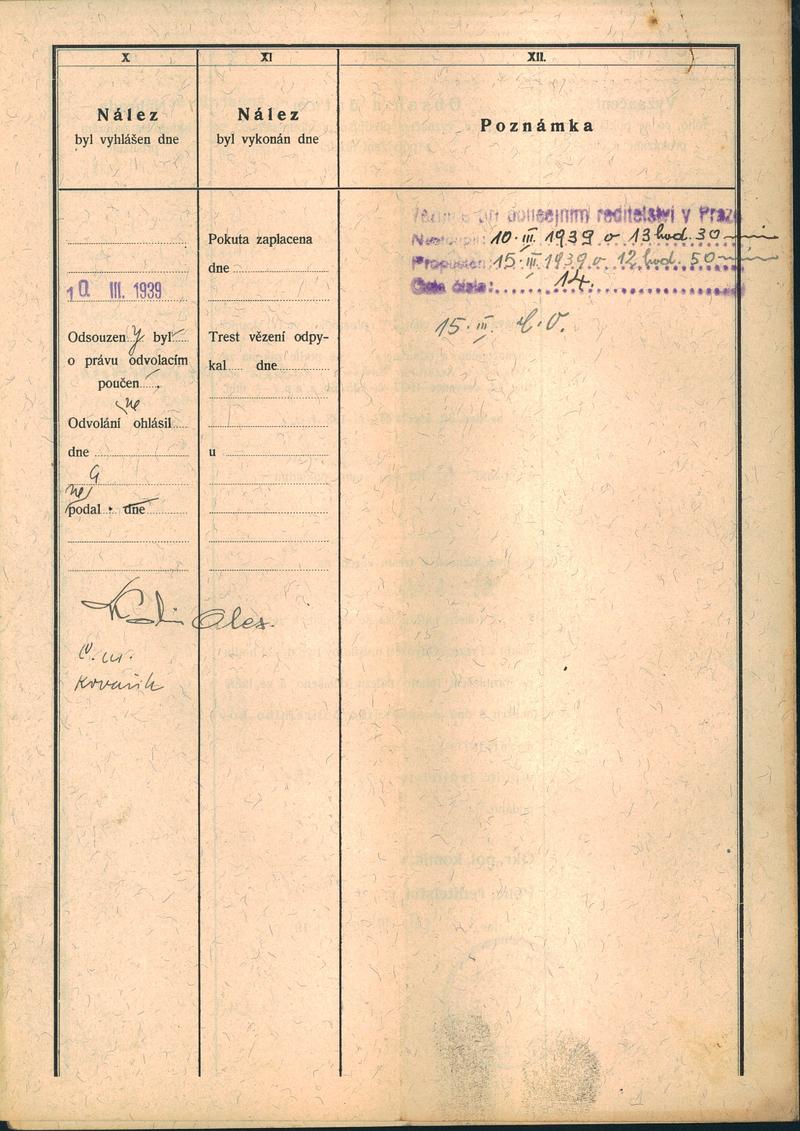 X
Nález
byl vyhlášen dne
10. III. 1939
Odsouzený byl
o právu odvolacím
poučen
ne
Odvolání ohlásil
dne
a
ne
podal dne
Alex.
Kovařík
XI
Nález
byl vykonán dne
Pokuta zaplacena
dne
Trest vězení odpy-
kal dne
u
XII.
Poznámka
při policejním ředitelství v Praze
Nastoupil: 10. III. 1939 o 13 hod. 30 min
Propuštěn: 15. III. 1939 o 12 hod. 50 min
Číslo: 14.
15. III.